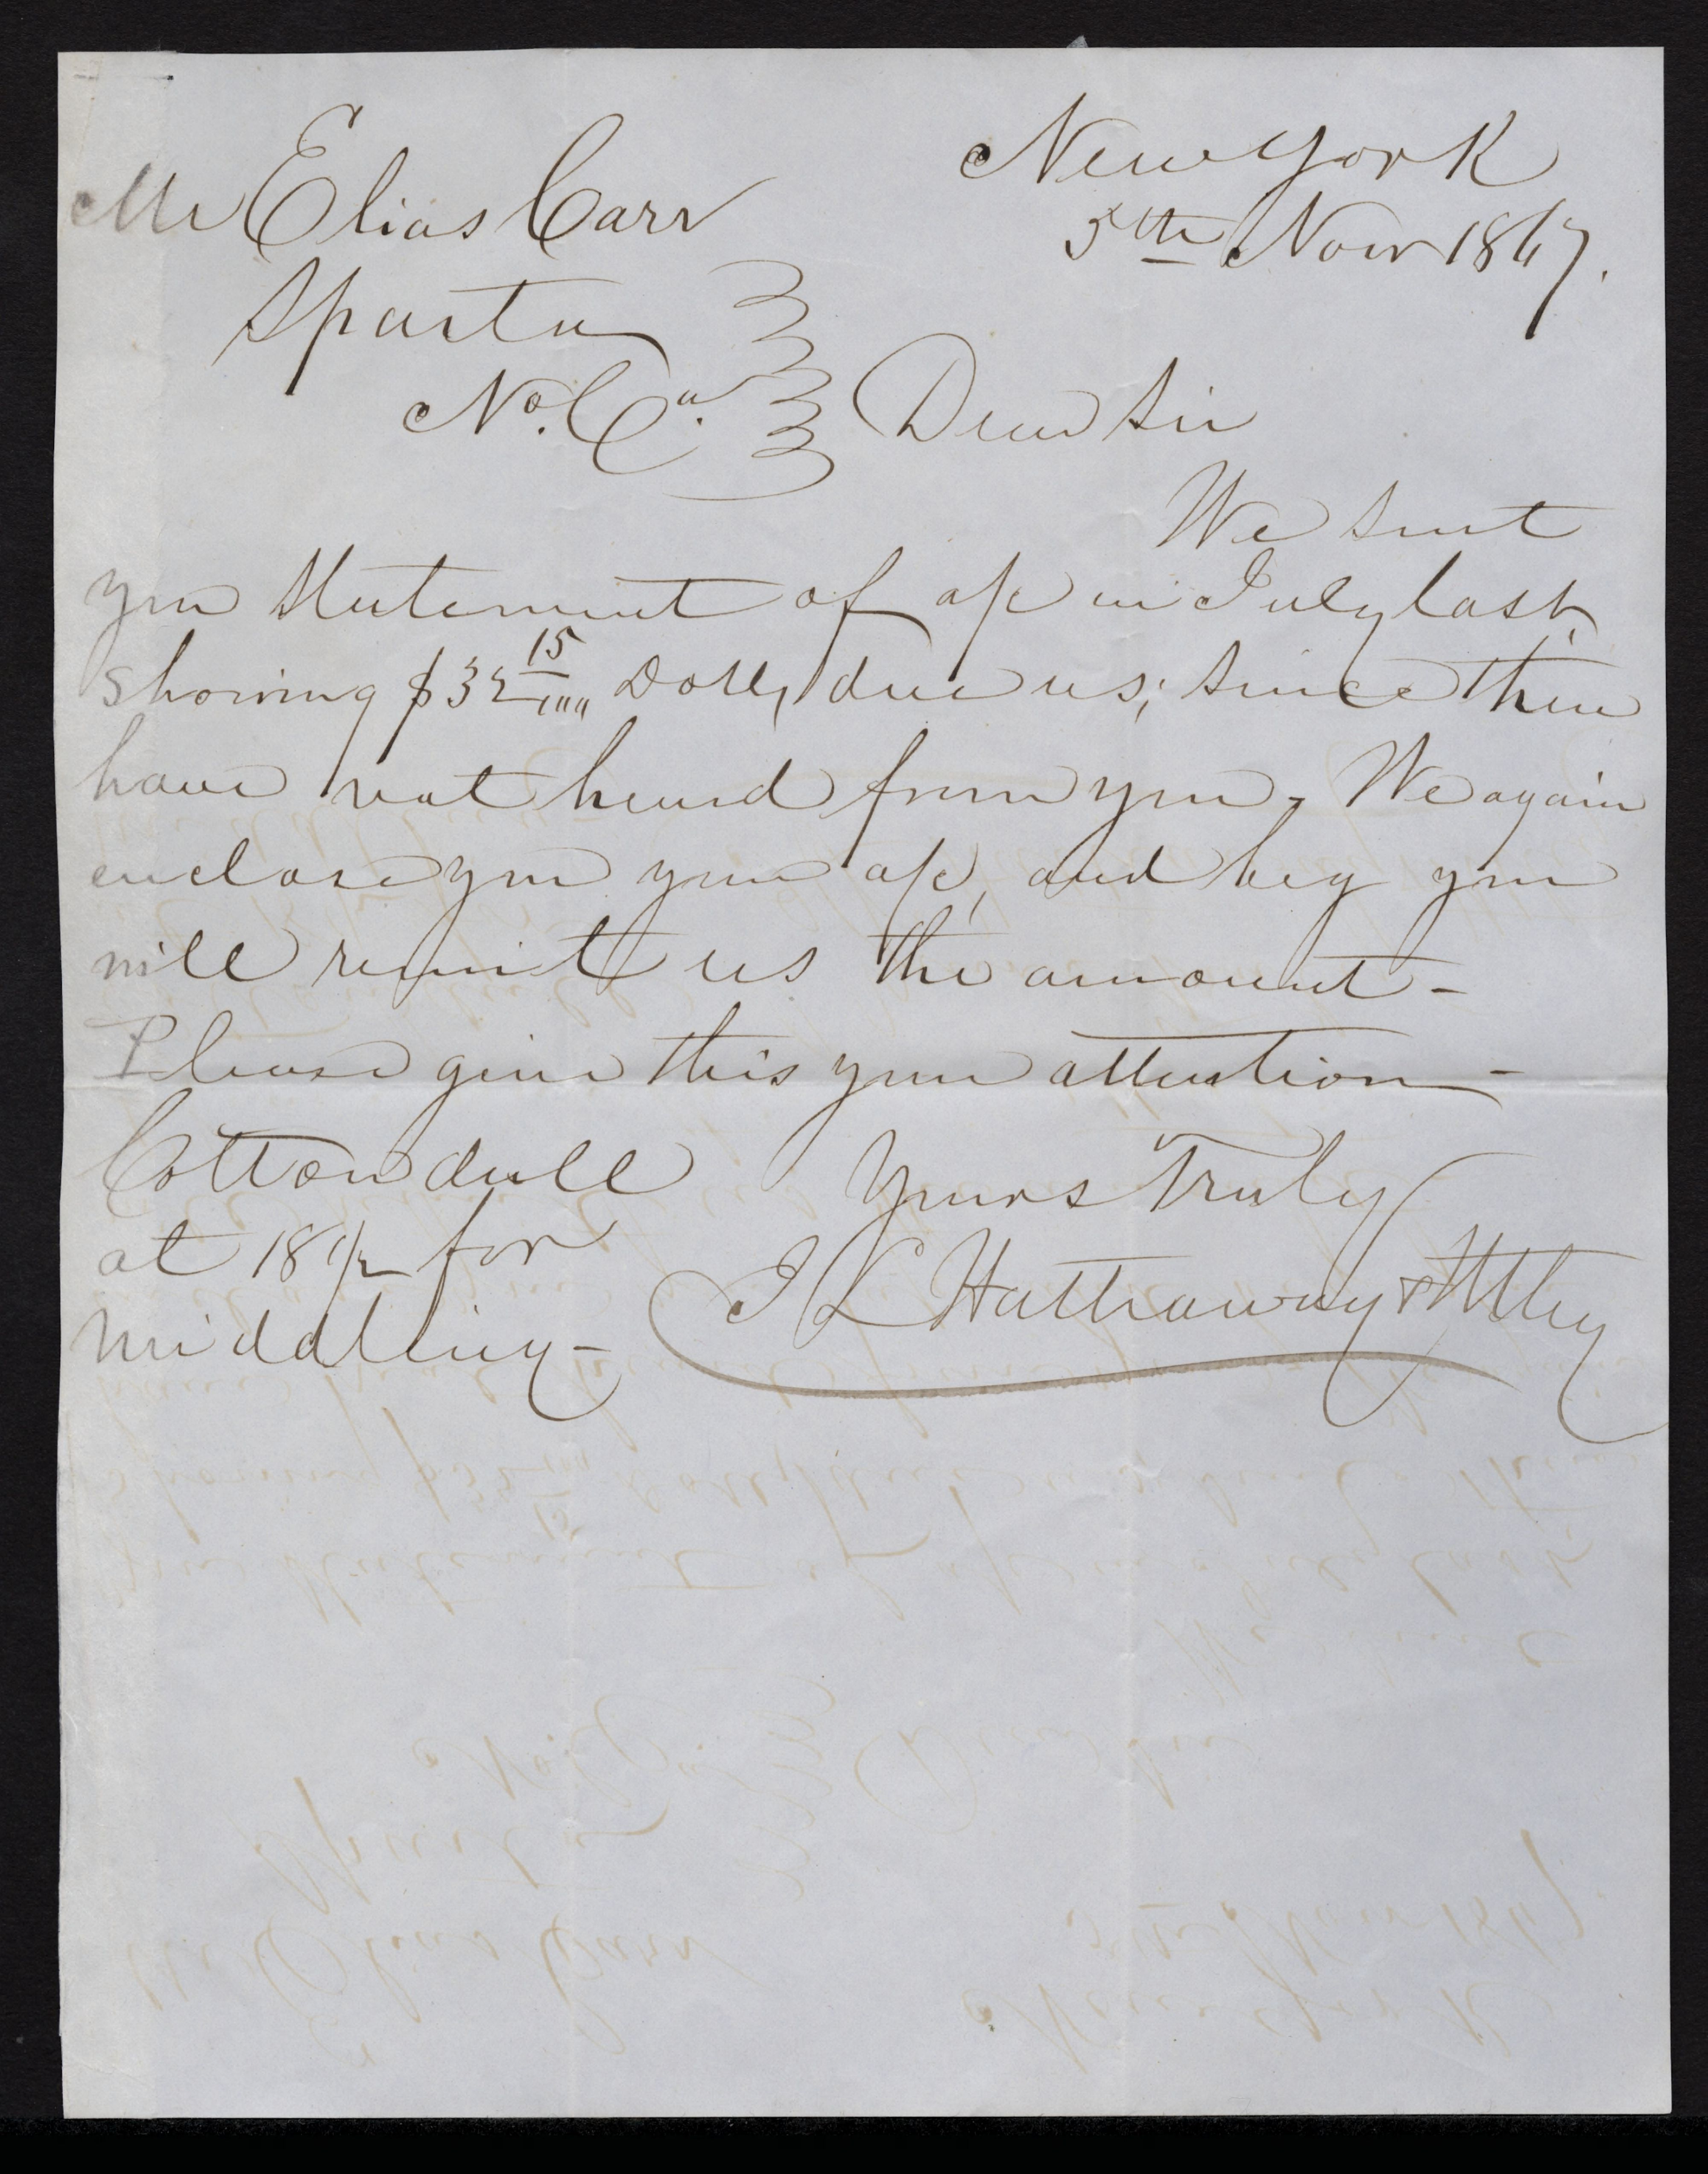 New York
5th Nov 1867.
Mr Elias Carr
Sparta
No. Ca.
Dear Sir
We sent
you Statement of a/c in July last,
showing $32 15/100 Dolls, due us; since then
have not heard from you, We again
enclose you your a/c, and beg you
will remit us the amount -
Please give this your attention -
Yours Truly
J L Hathaway & Utley
Cotton dull
at 18 1/2 for
middling -